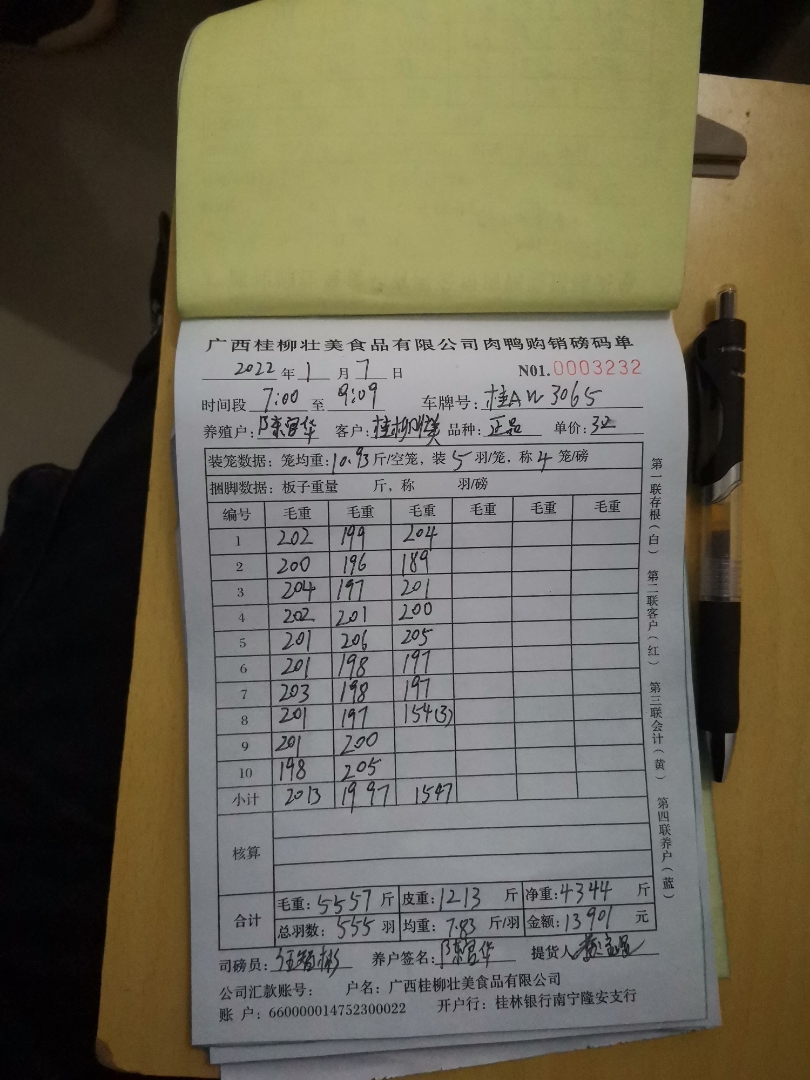 广西桂柳壮美食品有限公司肉鸭购销磅码单
2022 年 1 月 7 日 NO1. 0003232
时间段 7:00 至 9:09 车牌号: 桂AW3065
养殖户: 陈富华 客户: 桂柳壮美 品种: 正品 单价: 32
装笼数据: 笼均重: 10.93 斤/空笼, 装 5 羽/笼, 称 4 笼/磅
捆脚数据: 板子重量 斤, 称 羽/磅
编号 毛重 毛重 毛重 毛重 毛重 毛重
1 202 199 204
2 200 196 189
3 204 197 201
4 202 201 200
5 201 206 205
6 201 198 197
7 203 198 197
8 201 197 154(3)
9 201 200
10 198 205
小计 2013 1997 1547
核算
合计 毛重: 5557 斤 皮重: 1213 斤 净重: 4344 斤
总羽数: 555 羽 均重: 7.83 斤/羽 金额: 13901 元
司磅员: 养户签名: 陈富华 提货人
公司汇款账号: 户名: 广西桂柳壮美食品有限公司
账 户: 660000014752300022 开户行: 桂林银行南宁隆安支行
第一联存根(白) 第二联客户(红) 第三联会计(黄) 第四联养户(蓝)